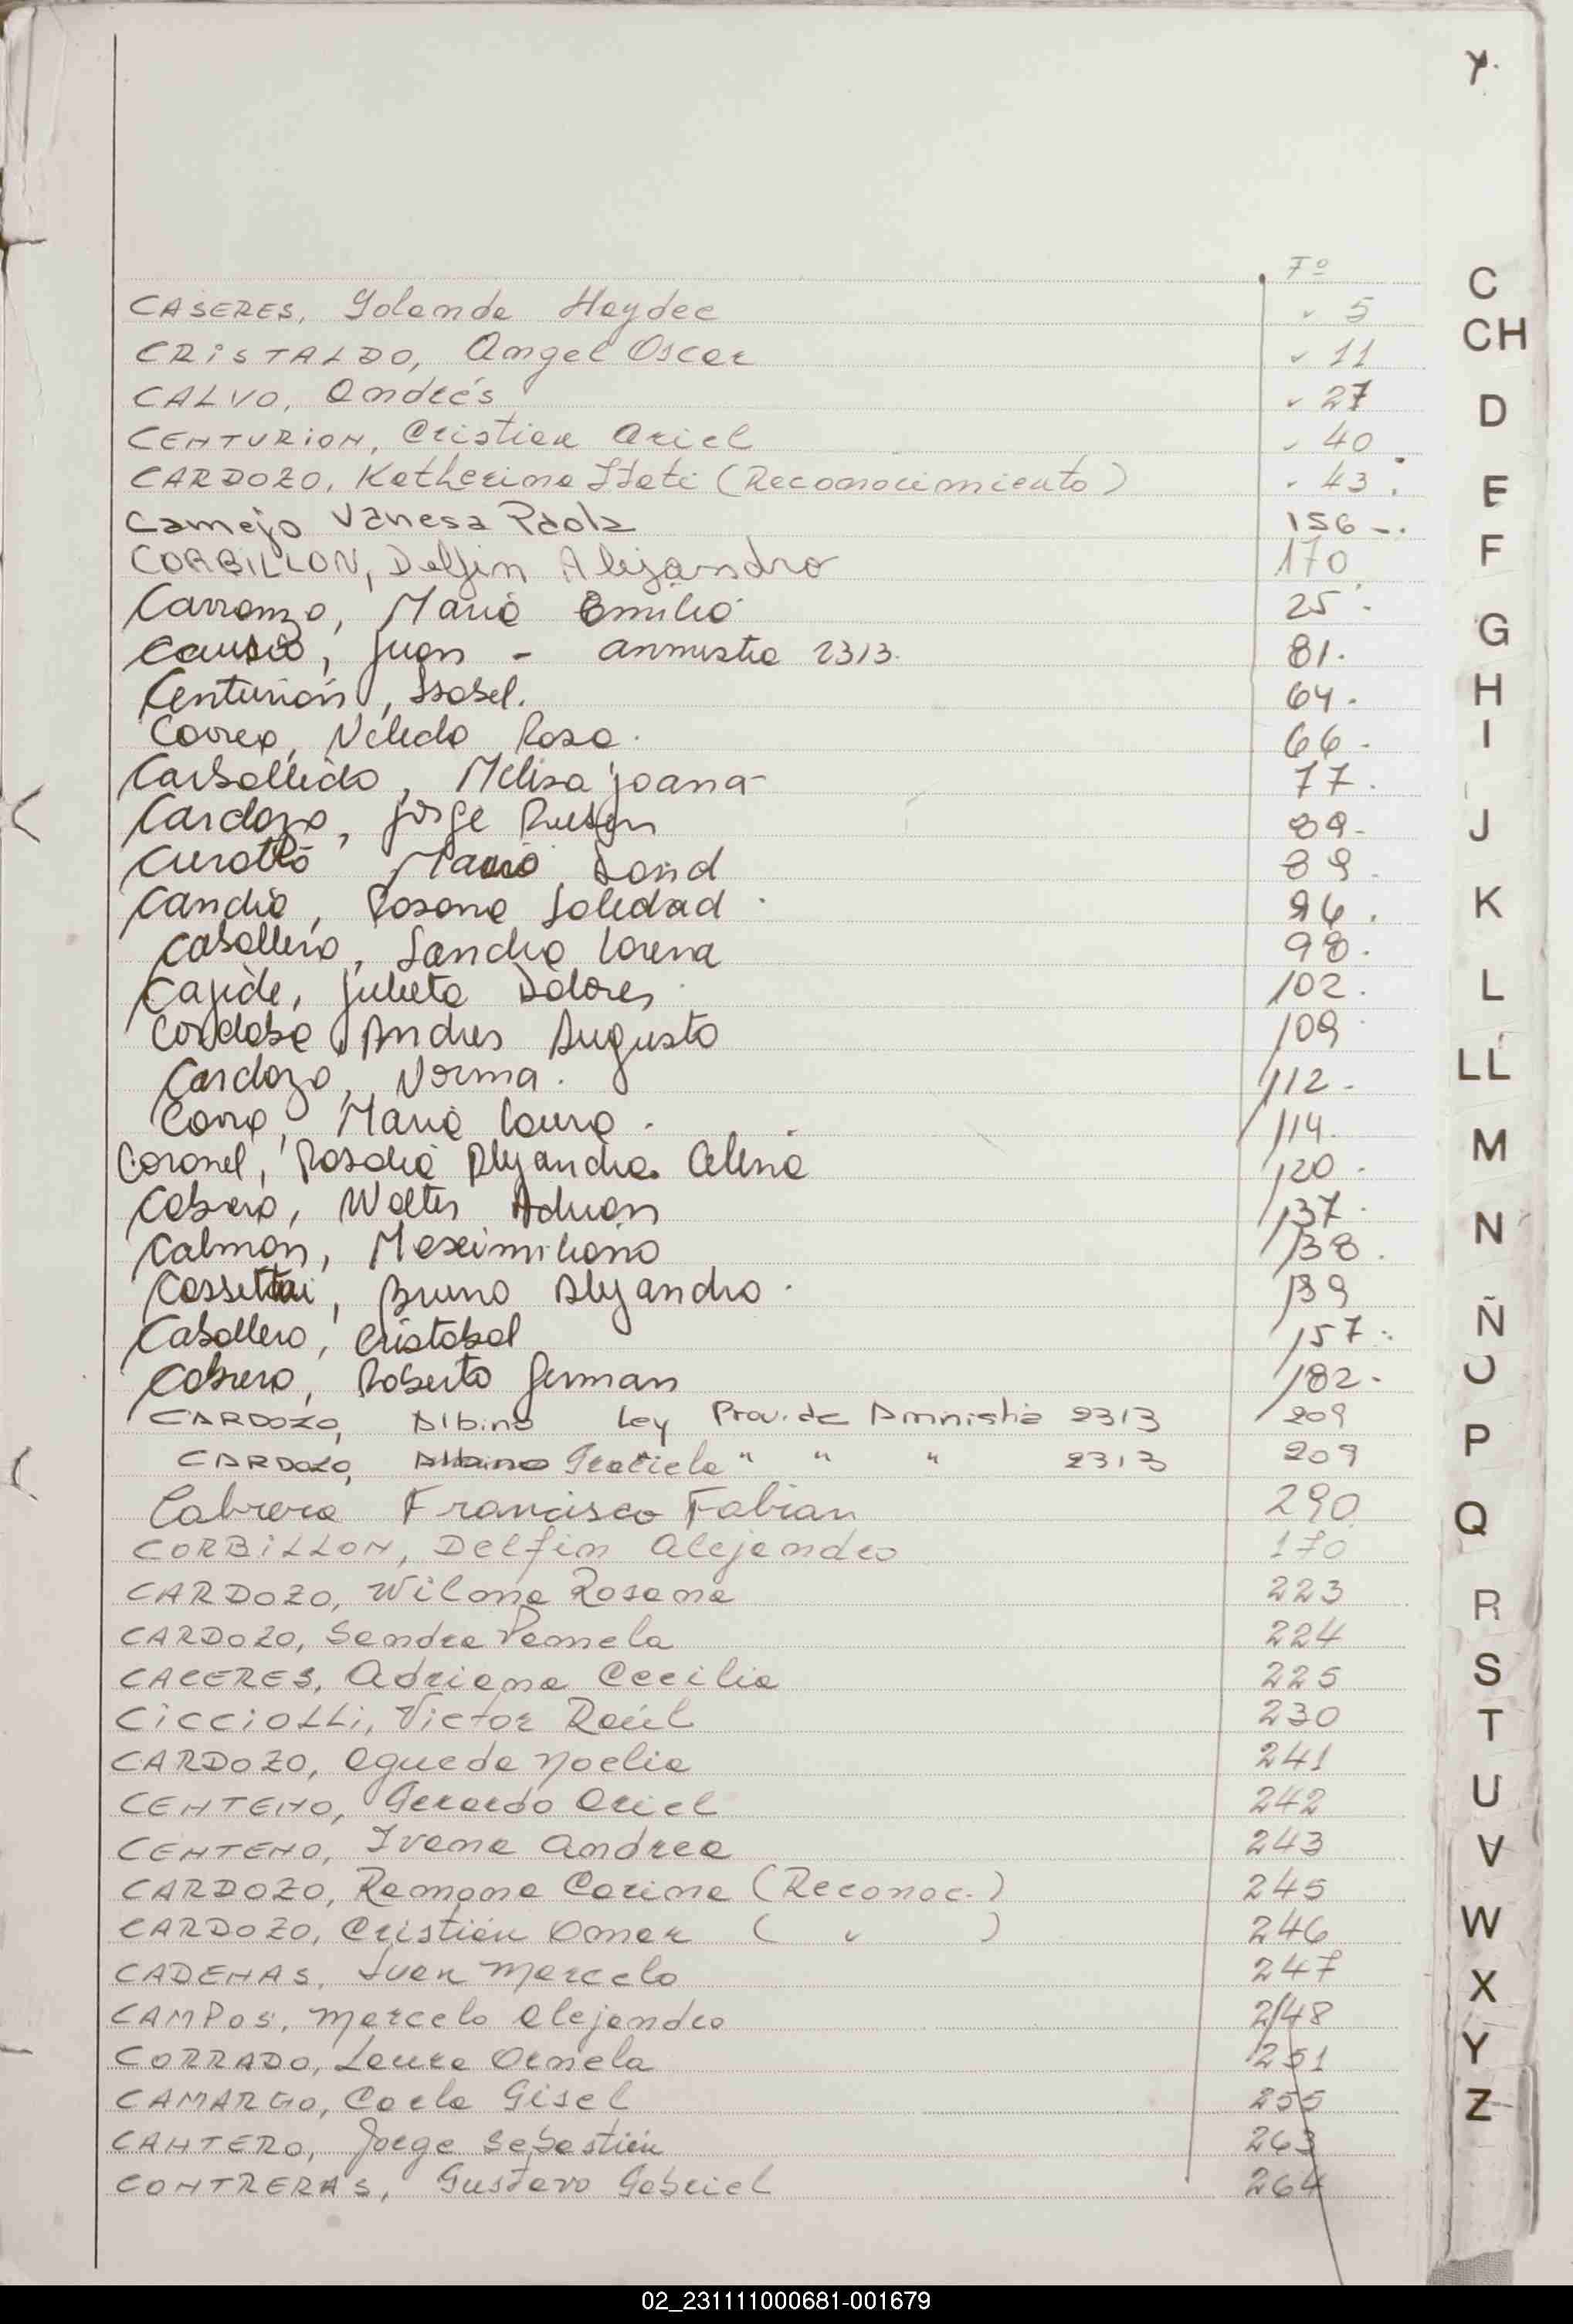 Y.
Fº
CASERES, Yolanda Haydee 5
CRISTALDO, Angel Oscar 11
CALVO, Andrés 27
CENTURION, Cristian Ariel 40
CARDOZO, Katherina Itati (Reconocimiento) 43
Camejo Vanesa Paola 156-.
CORBILLON, Delfin Alejandro 170
Carranza, Maria Emilia 25.
, Juan - Amnistia 2313. 81.
Centurión, Isabel. 64.
Correa, Nelida Rosa. 66.
Carballido, Melisa Joana- 77.
Cardozo, Jorge Ruben 89-
Curotto David 89.
Candia, Rosana Soledad. 96.
Caballero, Sandra Lorena 98.
Cajide, Julieta Dolores. 102.
Cordoba, Andres Augusto 109
Cardozo, Norma. 112-
Maria Laura. 114.
Coronel, Rosalia Alejandra Celina 120.
Cabrera, Walter Adrian 137.
Calmon, Maximiliano 138.
Bruno Alejandro. 139
Caballero, Cristobal 157.
Cabrera, Roberto German 182-
CARDOZO, Albino Ley Prov. de Amnistia 2313 209
CARDOZO, Albino Graciela " " " 2313 209
Cabrera Francisco Fabian 290
CORBILLON, Delfin Alejandro 170
CARDOZO, Wilona Rosana 223
CARDOZO, Sandra Pamela 224
CACERES, Adriana Cecilia 225
CICCIOLLI, Victor Raúl 230
CARDOZO, Agueda Noelia 241
CENTENO, Gerardo Ariel 242
CENTENO, Ivana Andrea 243
CARDOZO, Ramona Corina (Reconoc.) 245
CARDOZO, Cristián Omar ( " ) 246
CADENAS, Marcelo 247
CAMPOS, Marcelo Alejandro 248
CORRADO, Laura Ornela 251
CAMARGO, Carla Gisel 255
CANTERO, Jorge Sebastián 263
CONTRERAS, Gustavo Gabriel 264
C
CH
D
E
F
G
H
I
J
K
L
LL
M
N
Ñ
O
P
Q
R
S
T
U
V
W
X
Y
Z
02_231111000681-001679